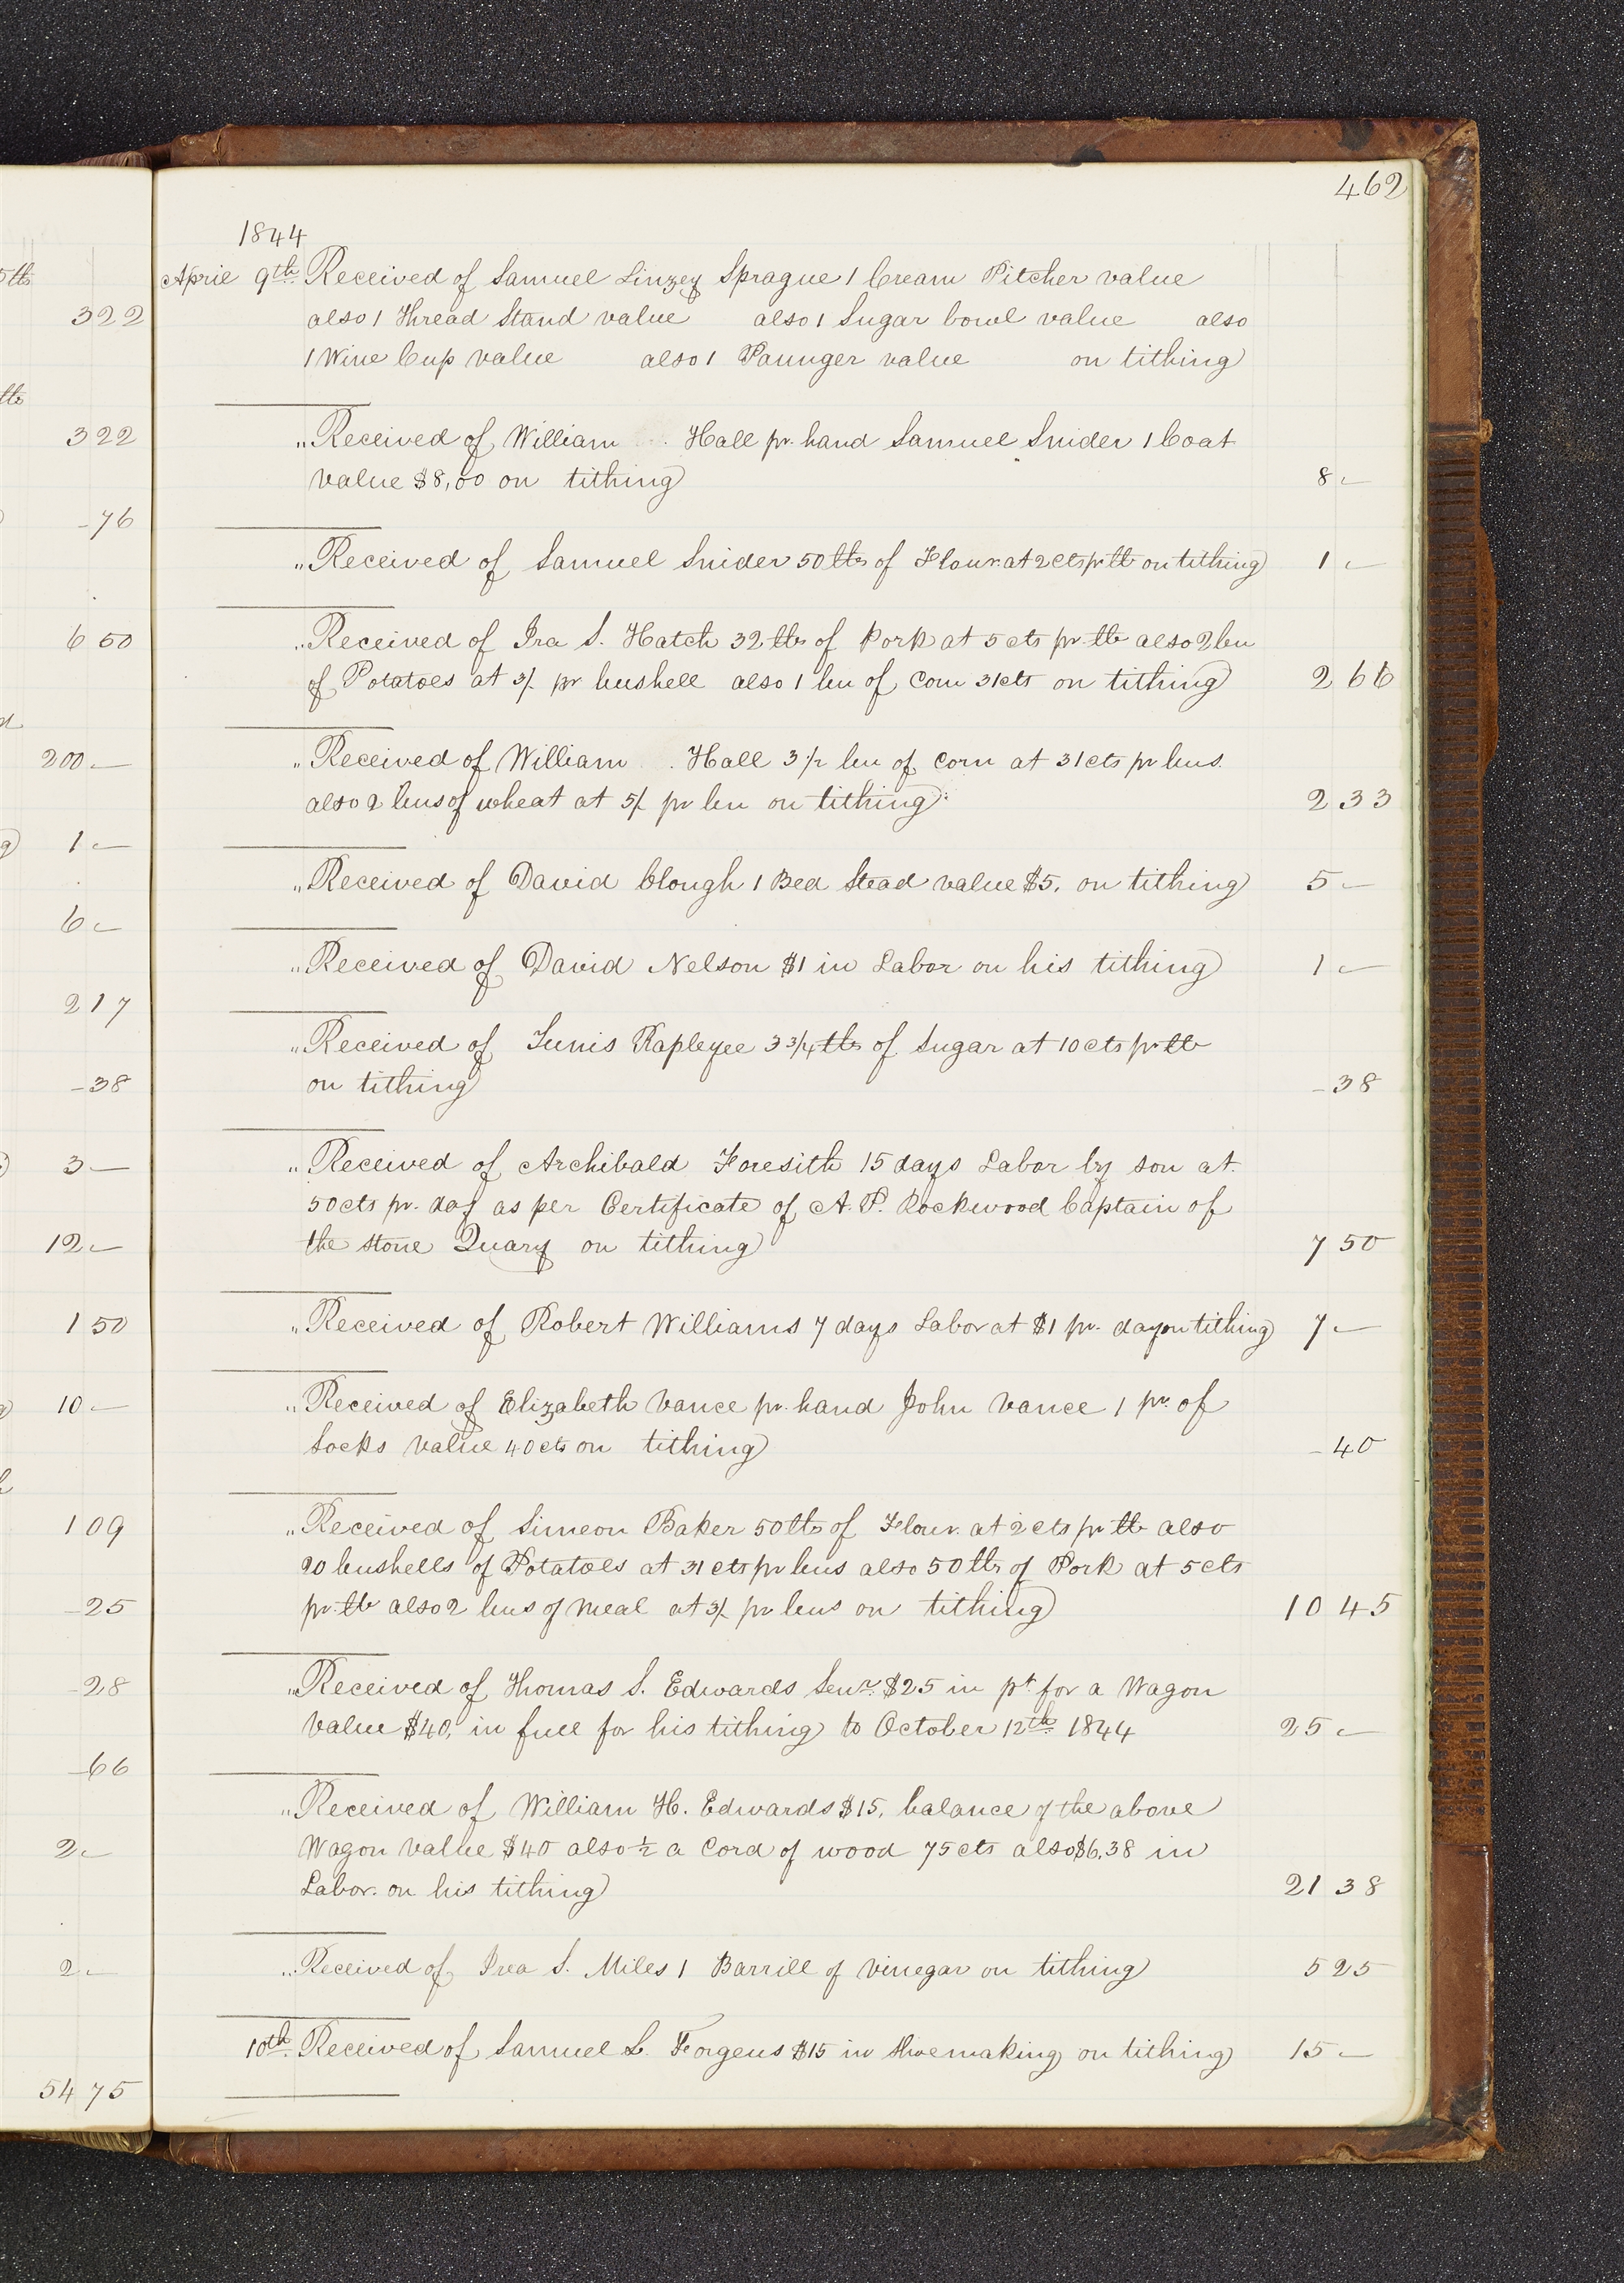 462
1844
April 9th Received of Samuel Linzey Sprague 1 Cream Pitcher value
also 1 Thread Stand value also 1 Sugar bowl value also
1 Wine Cup value also 1 value on tithing
" Received of William Hall pr. hand Samuel Snider 1 Coat
value $8,00 on tithing 8 -
" Received of Samuel Snider 50 lbs of Flour at 2 cts pr lb on tithing 1 -
" Received of Ira S. Hatch 32 lbs of Pork at 5 cts pr lb also 2 bu
of Potatoes at 3/ pr bushell also 1 bu of Corn 31 cts on tithing 2 66
" Received of William Hall 3 1/2 bu of Corn at 31 cts pr bus.
also 2 bus of wheat at 5/ pr bu on tithing 2 33
" Received of David Clough 1 Bed Stead value $5. on tithing 5 -
" Received of David Nelson $1 in Labor on his tithing 1 -
" Received of Tunis Rapleyee 3 3/4 lbs of Sugar at 10 cts pr lb
on tithing - 38
" Received of Archibald Foresith 15 days Labor by son at
50 cts pr. day as per Certificate of A. P. Rockwood Captain of
the stone Quary on tithing 7 50
" Received of Robert Williams 7 days Labor at $1 pr. day on tithing 7 -
" Received of Elizabeth Vance pr. hand John Vance 1 pr. of
Socks value 40 cts on tithing - 40
" Received of Simeon Baker 50 lbs of Flour at 2 cts pr lb also
20 bushells of Potatoes at 31 cts pr bus also 50 lbs of Pork at 5 cts
pr lb also 2 bus of meal at 3/ pr bus on tithing 10 45
" Received of Thomas S. Edwards Senr. $25 in pt. for a Wagon
value $40, in full for his tithing to October 12th 1844 25 -
" Received of William H. Edwards $15, balance of the above
Wagon value $40 also 1/2 a Cord of wood 75 cts also $6.38 in
Labor. on his tithing 21 38
" Received of Ira S. Miles 1 Barrill of vinegar on tithing 5 25
10th Received of Samuel L. Forgeus $15 in Shoemaking on tithing 15 -
3 22
3 22
- 76
6 50
200 -
1 -
6 -
2 17
- 38
3 -
12 -
1 50
10 -
1 09
- 25
- 28
- 66
2 -
2 -
54 75